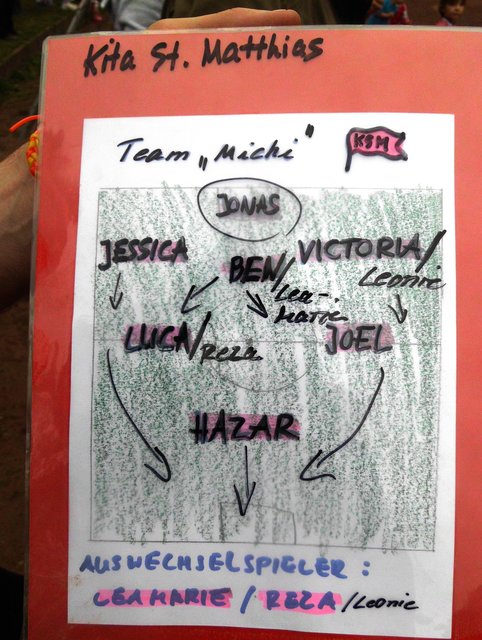 Kita St. Matthias
Team „Michi"
KSM
JONAS
JESSICA
BEN/
VICTORIA/
Leonie
Lea-
Marie
LUCA/Reza
JOEL
HAZAR
AUSWECHSELSPIELER:
LEAMARIE / REZA /Leonie